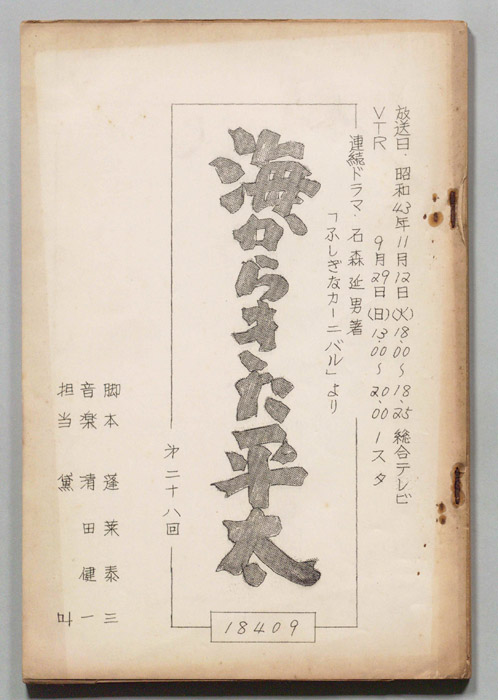 放送日・昭和43年11月12日(火)18.00〜18.25 総合テレビ
VTR 9月29日(日)13.00〜20.00 1スタ
連続ドラマ・石森延男著
「ふしぎなカーニバル」より
海からきた平太
第二十八回
18409
脚本 蓬莱泰三
音楽 清田健一
担当 黛叫